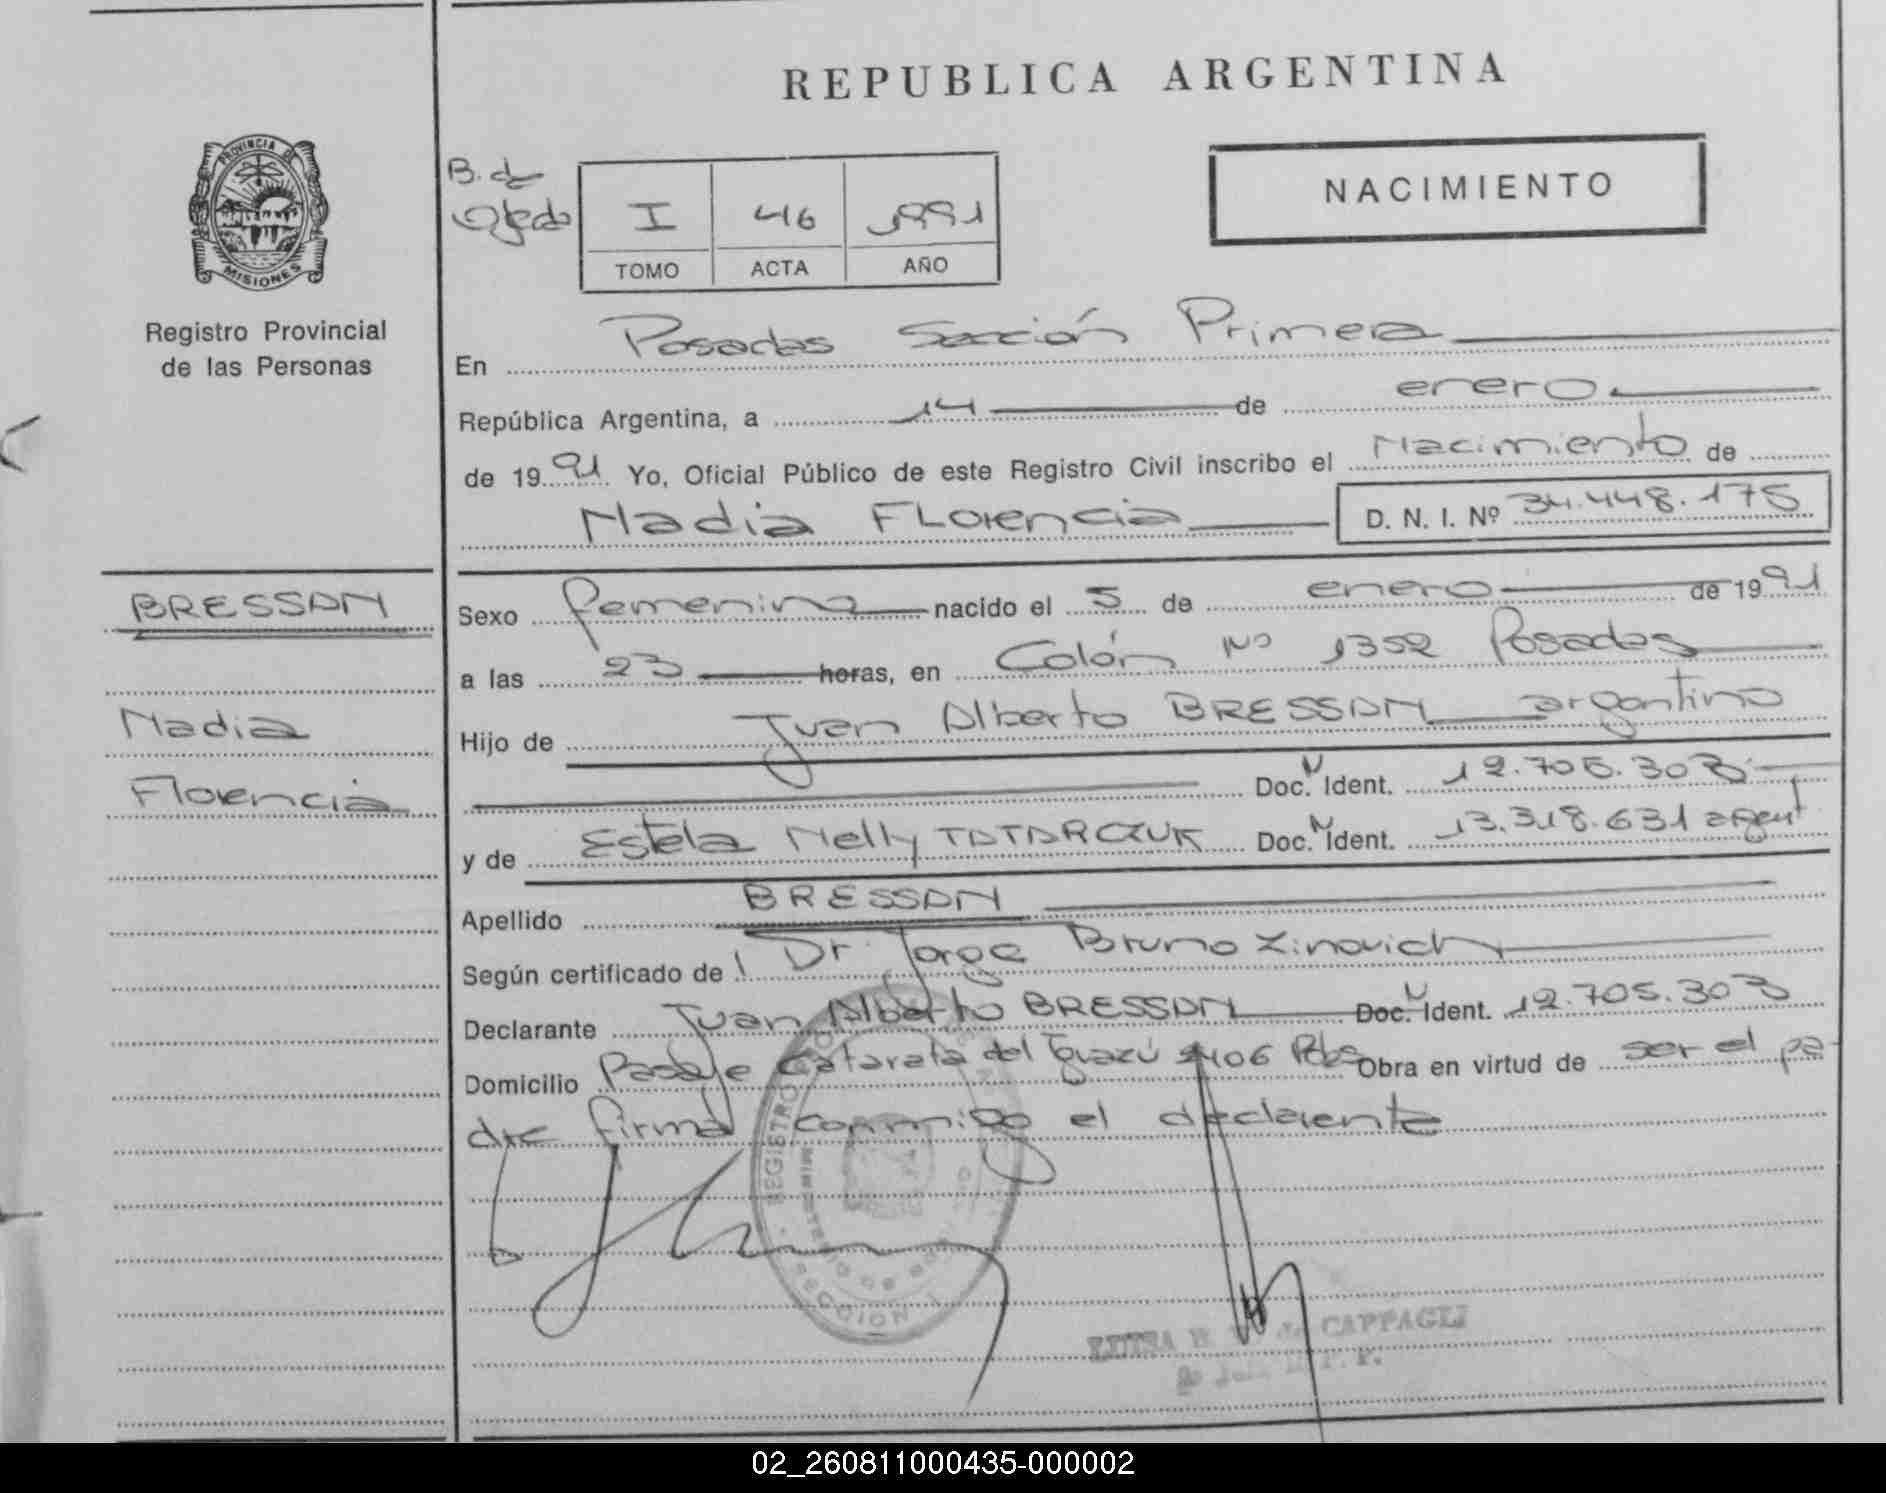 REPUBLICA ARGENTINA
PROVINCIA DE
MISIONES
Registro Provincial
de las Personas
B. de
Ojeda
I 46 1991
TOMO ACTA AÑO
NACIMIENTO
En Posadas Sección Primera
República Argentina, a 14 de enero
de 1991 Yo, Oficial Público de este Registro Civil inscribo el Nacimiento de
Nadia Florencia D. N. I. Nº 34.448.175
BRESSAN
Nadia
Florencia
Sexo femenino nacido el 5 de enero de 1991
a las 23 horas, en Colón Nº 1352 Posadas
Hijo de Juan Alberto BRESSAN argentino
Doc. N Ident. 12.705.303
y de Estela Nelly TATARCZUK Doc. N Ident. 13.318.631 argent
Apellido BRESSAN
Según certificado de Dr. Jorge Bruno Zinovich
Declarante Juan Alberto BRESSAN Doc. N Ident. 12.705.303
Domicilio Pasaje Catarata del Iguazú 2406 Pdas Obra en virtud de ser el pa-
dre firma conmigo el declarante
REGISTRO
MINISTERIO DE
SECCION I
LUISA de CAPPAGLI
02_260811000435-000002